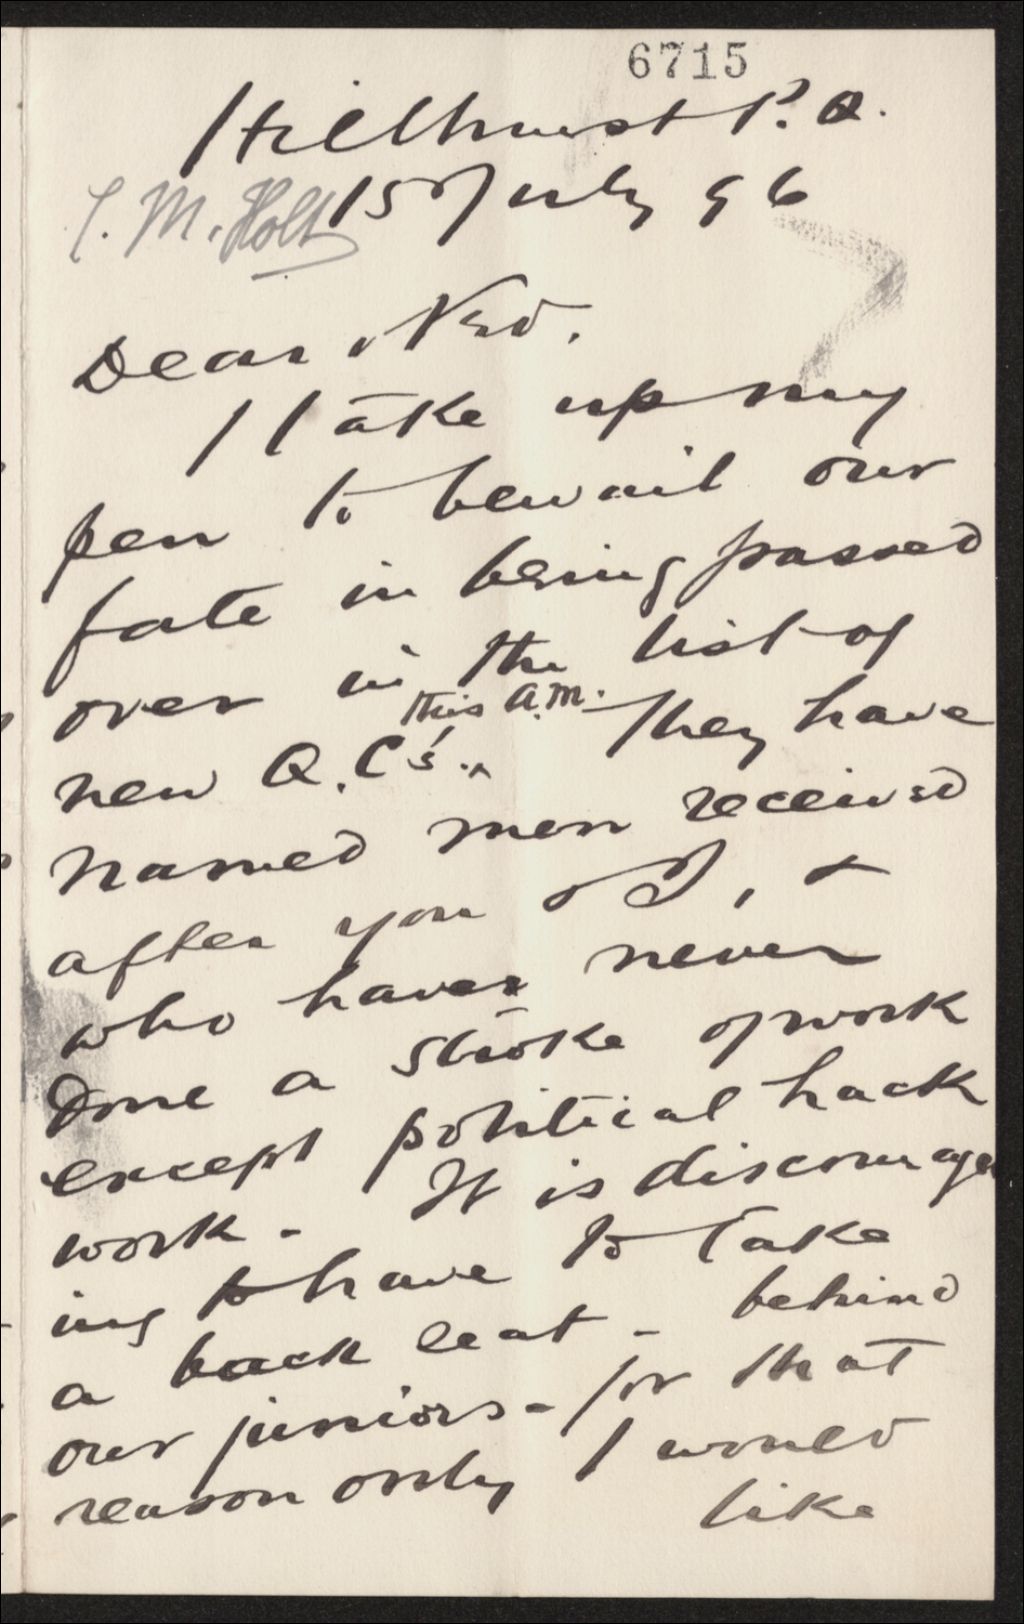 6715
Hillhurst P.Q.
C. M. Holt 15 July 96
Dear Ned,
I take up my
pen to bewail our
fate in being passed
over in the list of
new Q.C's. this A.M. They have
named men received
after you & I, &
who haves never
done a stroke of work
except political hack
work - It is discourag
ing to have to take
a back seat - behind
our juniors - for that
reason only I would
like